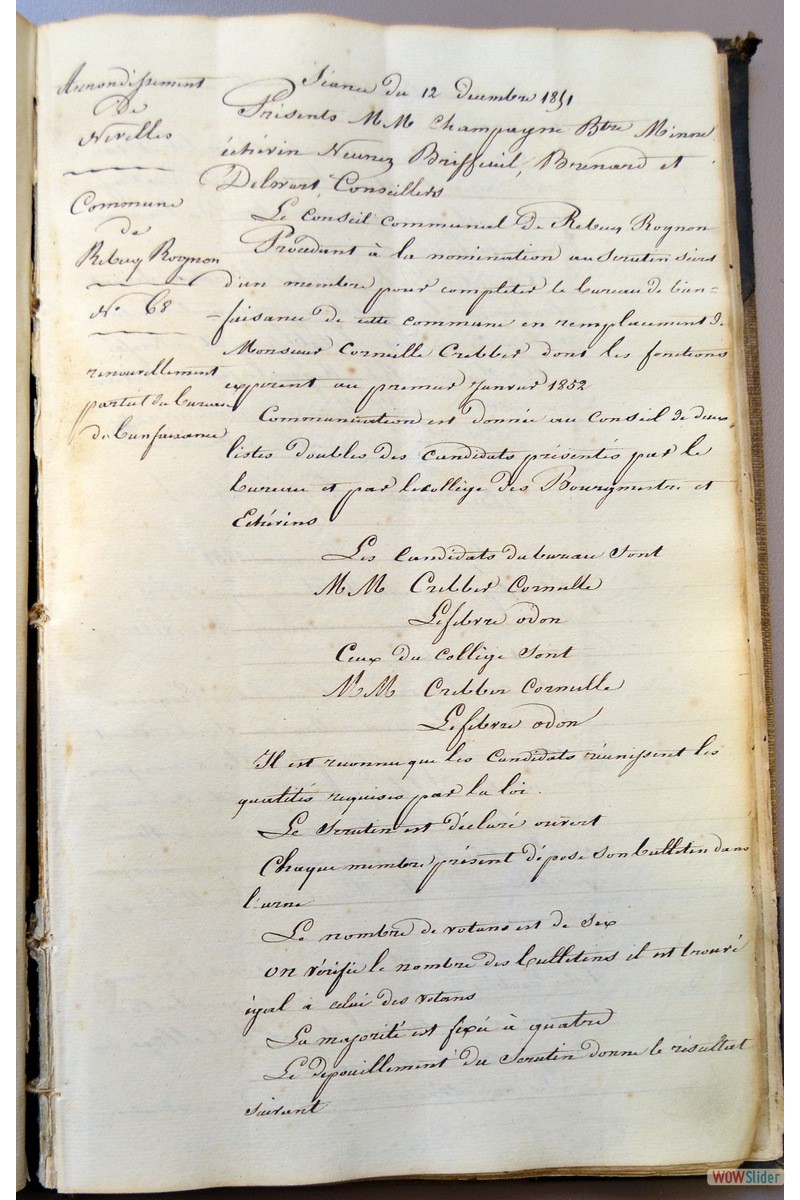 Arrondissement
de
Nivelles
Commune
de
Rebecq Rognon
N° 68
renouvellement
partiel du bureau
de bienfaisance
Séance du 12 decembre 1851
Présents MM Champagne Btre Minne
échévin Neunez Briffeuil, Brenard et
Delwart, Conseillers
Le conseil communal de Rebecq Rognon
Procédant à la nomination au scrutin sécret
d'un membre pour completer le bureau de bien=
=faisance de cette commune en remplacement de
Monsieur Corneille Crebber dont les fonctions
expirent au premier Janvier 1852
Communication est donnée au Conseil de deux
listes doubles des candidats présentés par le
bureau et par le collège des Bourgmestre et
Echévins
Les candidats du bureau sont
MM Crebber Corneille
Lefebvre odon
Ceux du collège sont
MM Crebber Corneille
Lefebvre odon
Il est reconnu que les candidats réunissent les
qualités requises par la loi.
Le scrutin est déclaré ouvert
Chaque membre présent dépose son bulletin dans
l'urne
Le nombre de votans est de six
on vérifie le nombre des bulletins il est trouvé
égal à celui des votans
La majorité est fixée à quatre
Le dépouillement du scrutin donne le résultat
suivant
WOWSlider